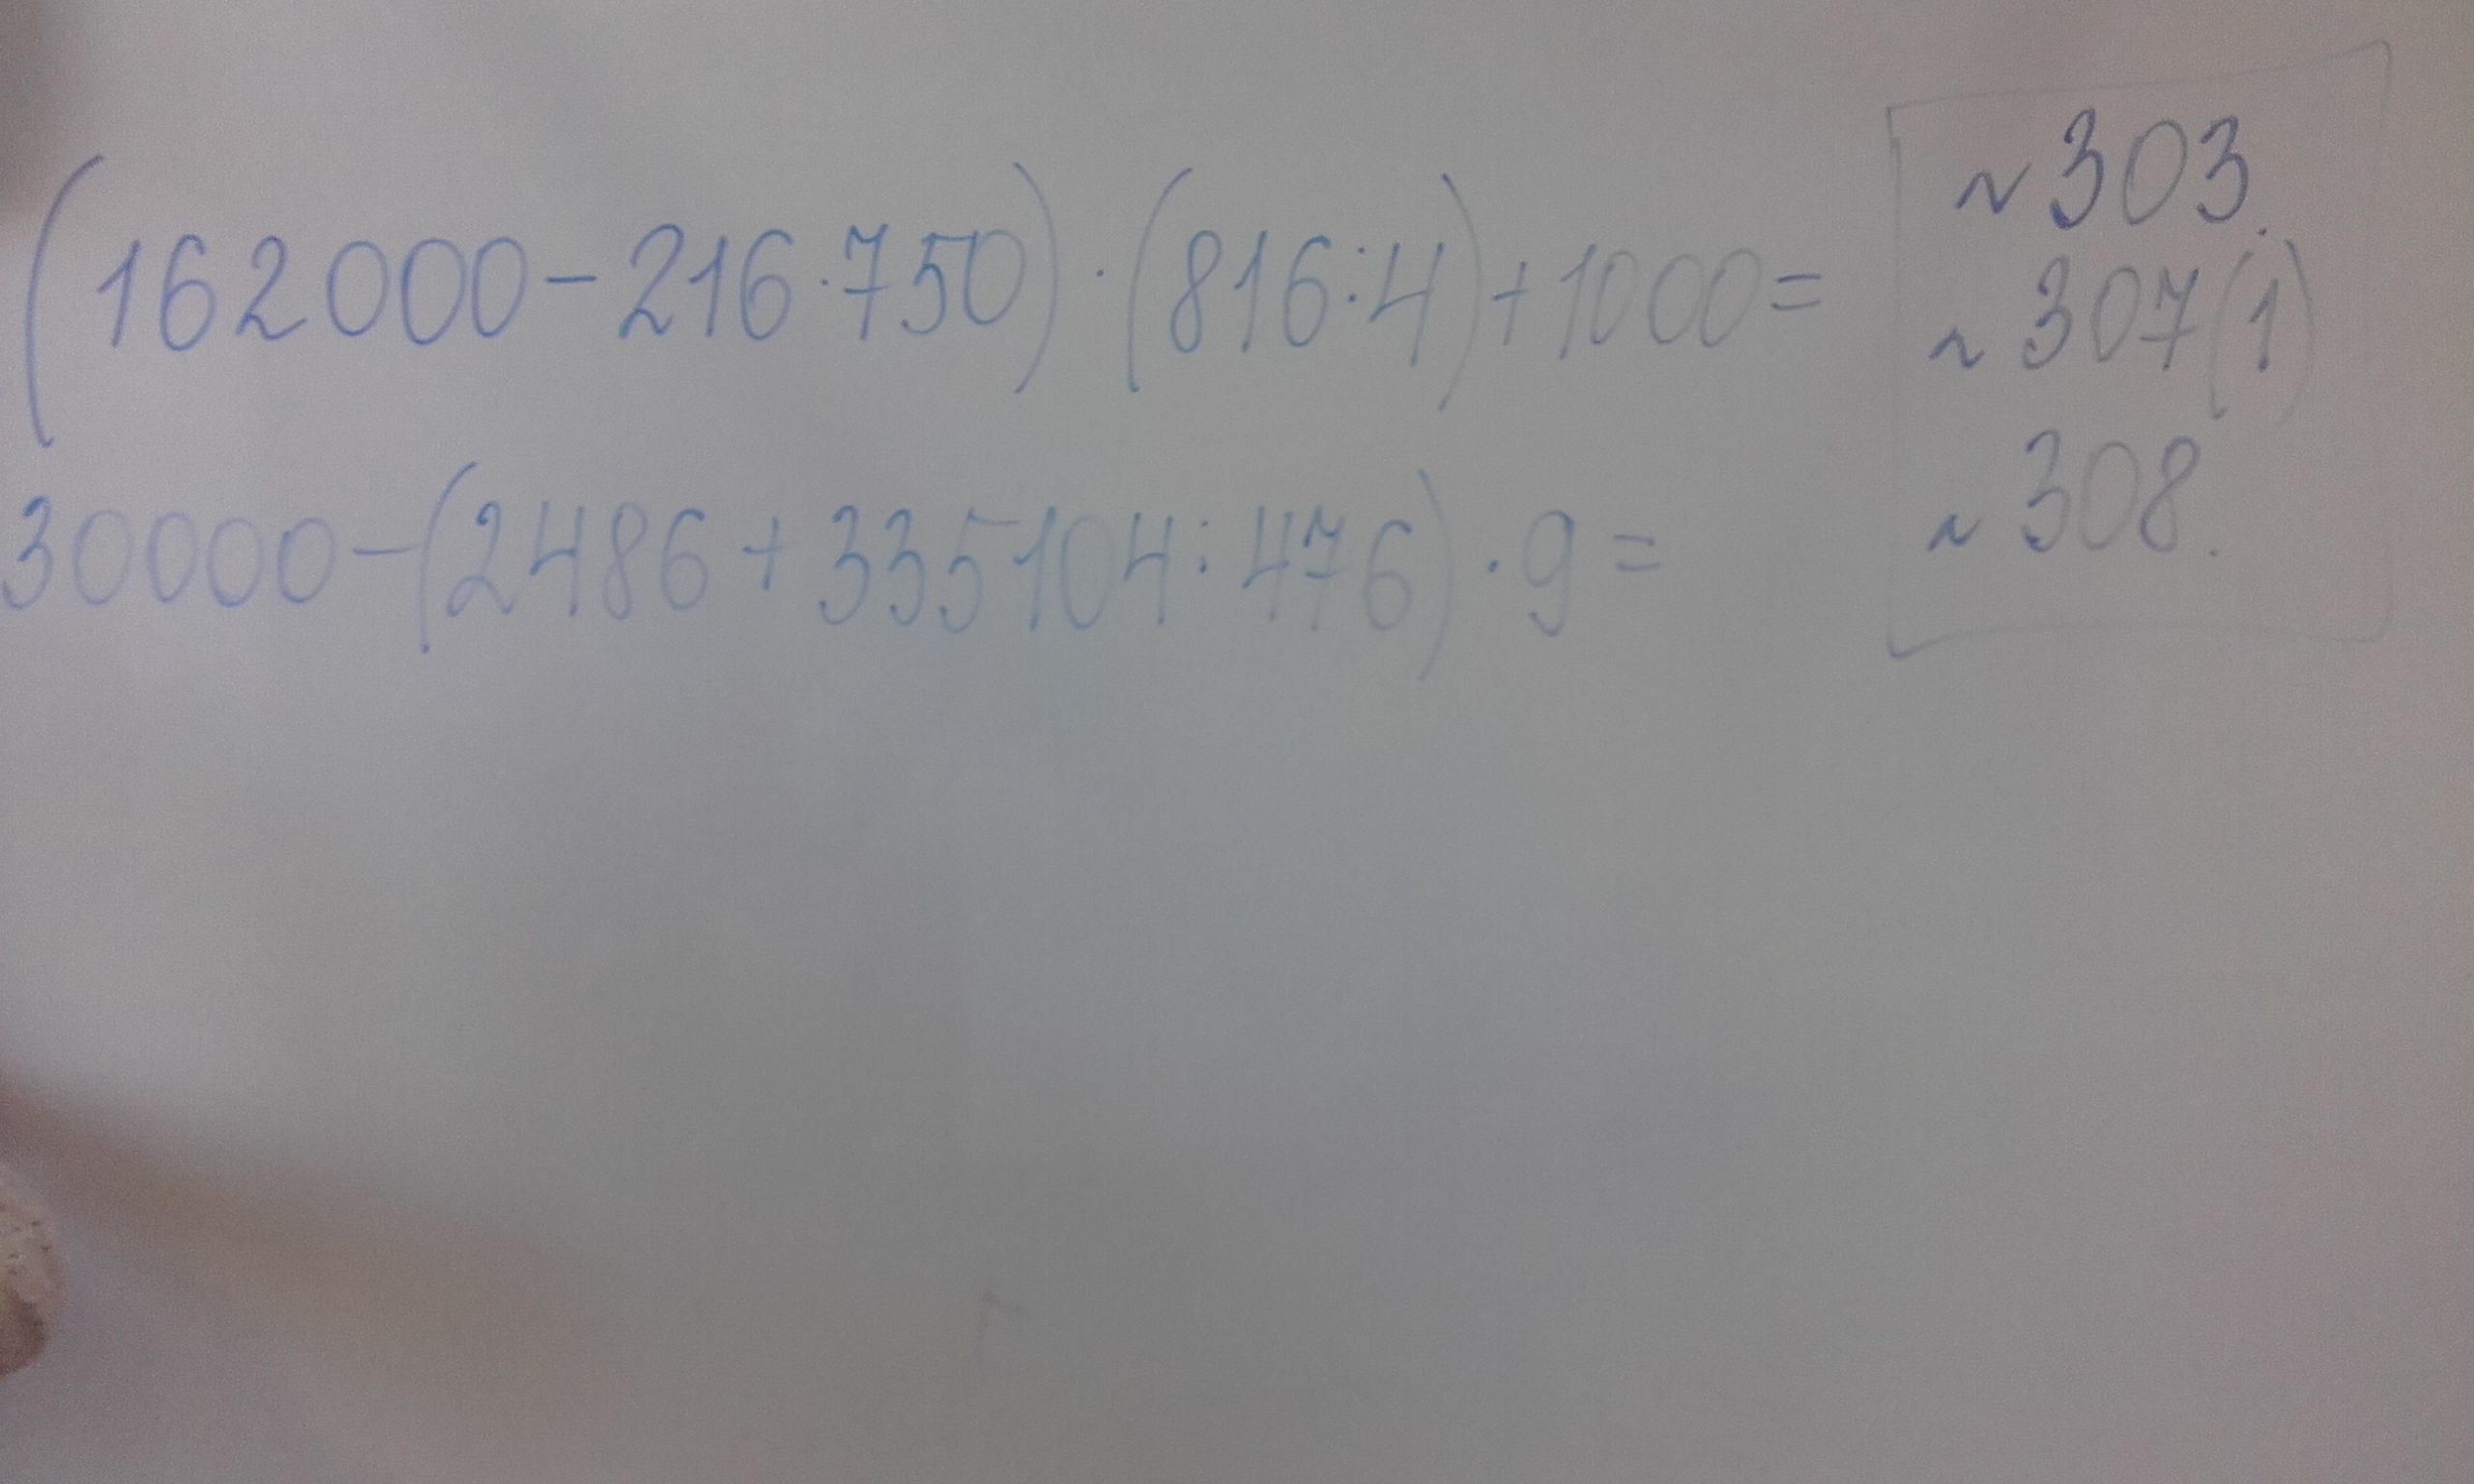 (162000-216·750)·(816:4)+1000=
30000-(2486+335104:476)·9=
~303.
~307(1)
~308.